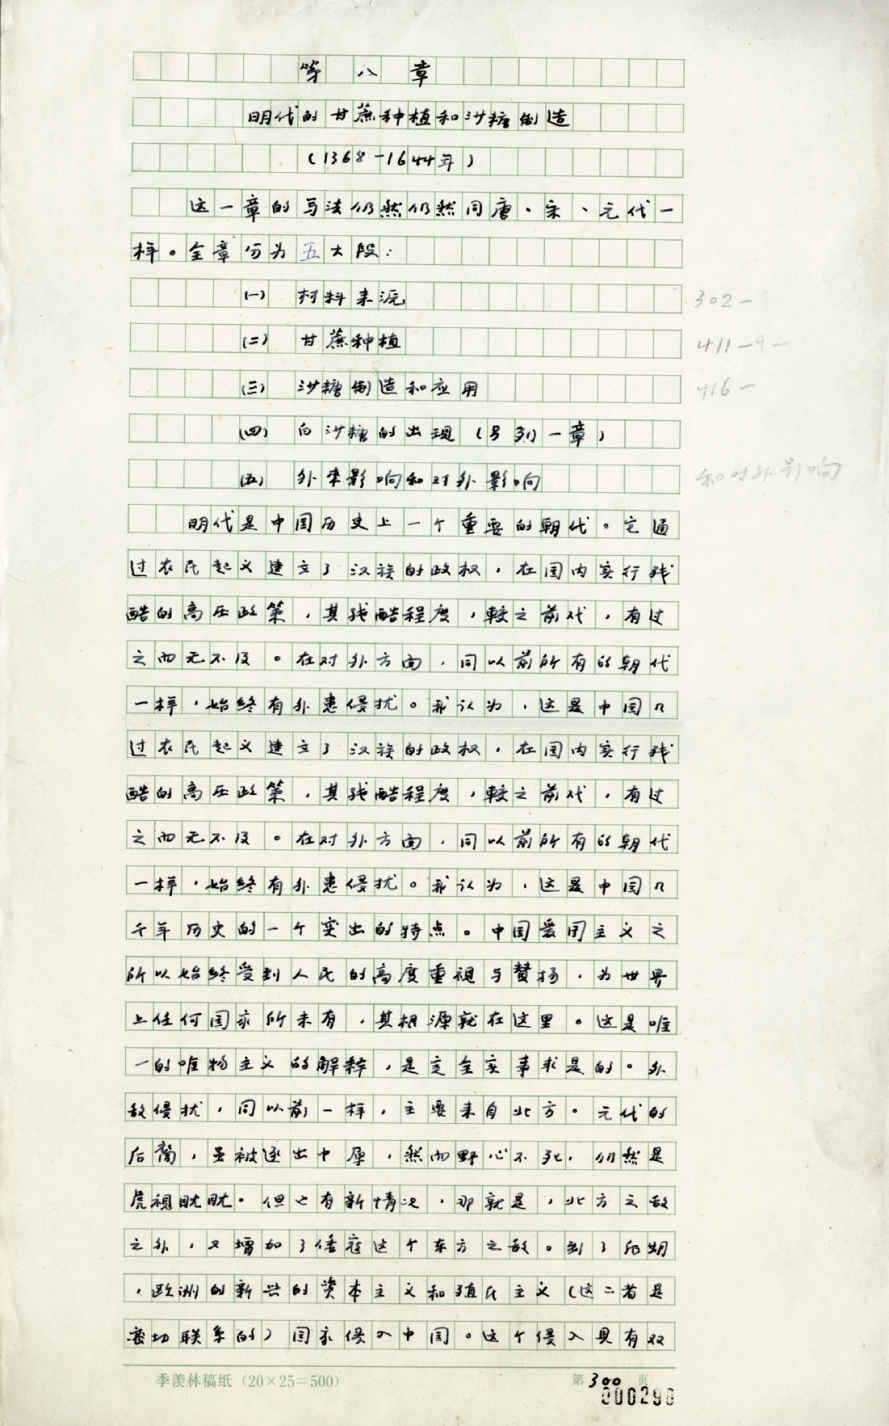 第八章
明代的甘蔗种植和沙糖制造
(1368-1644年)
这一章的写法仍然仍然同唐、宋、元代一
样。全章分为五大段:
(一) 材料来源 302-
(二) 甘蔗种植 411-
(三) 沙糖制造和应用 416-
(四) 白沙糖的出现(另列一章)
(五) 外来影响和对外影响 和对外影响
明代是中国历史上一个重要的朝代。它通
过农民起义建立了汉族的政权,在国内实行残
酷的高压政策,其残酷程度,较之前代,有过
之而无不及。在对外方面,同以前所有的朝代
一样,始终有外患侵扰。我认为,这是中国几
过农民起义建立了汉族的政权,在国内实行残
酷的高压政策,其残酷程度,较之前代,有过
之而无不及。在对外方面,同以前所有的朝代
一样,始终有外患侵扰。我认为,这是中国几
千年历史的一个突出的特点。中国爱国主义之
所以始终受到人民的高度重视与赞扬,为世界
上任何国家所未有,其根源就在这里。这是唯
一的唯物主义的解释,是完全实事求是的。外
敌侵扰,同以前一样,主要来自北方。元代的
后裔,虽被逐出中原,然而野心不死,仍然是
虎视眈眈。但也有新情况,那就是,北方之敌
之外,又增加了倭寇这个东方之敌。到了后期
,欧洲的新兴的资本主义和殖民主义(这二者是
密切联系的)国家侵入中国。这个侵入具有双
季羡林稿纸(20×25=500)
第300页
000298